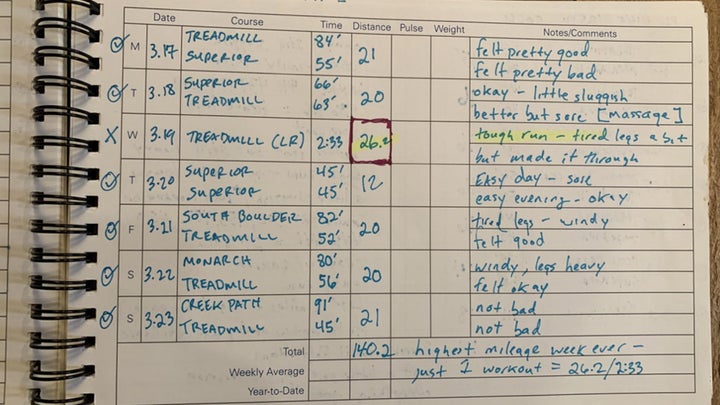 Date Course Time Distance Pulse Weight Notes/Comments
M 3.17 TREADMILL 84' 21 felt pretty good
SUPERIOR 55' felt pretty bad
T 3.18 SUPERIOR 66' 20 okay - little sluggish
TREADMILL 63' better but sore [massage]
W 3.19 TREADMILL (LR) 2:33 26.2 tough run - tired legs a bit
but made it through
T 3.20 SUPERIOR 45' 12 EASY day - sore
SUPERIOR 45' easy evening - okay
F 3.21 SOUTH BOULDER 82' 20 tired legs - windy
TREADMILL 52' felt good
S 3.22 MONARCH 80' 20 windy, legs heavy
TREADMILL 56' felt okay
S 3.23 CREEK PATH 91' 21 not bad
TREADMILL 45' not bad
Total 140.2 highest mileage week ever -
Weekly Average just 1 workout = 26.2/2:33
Year-to-Date